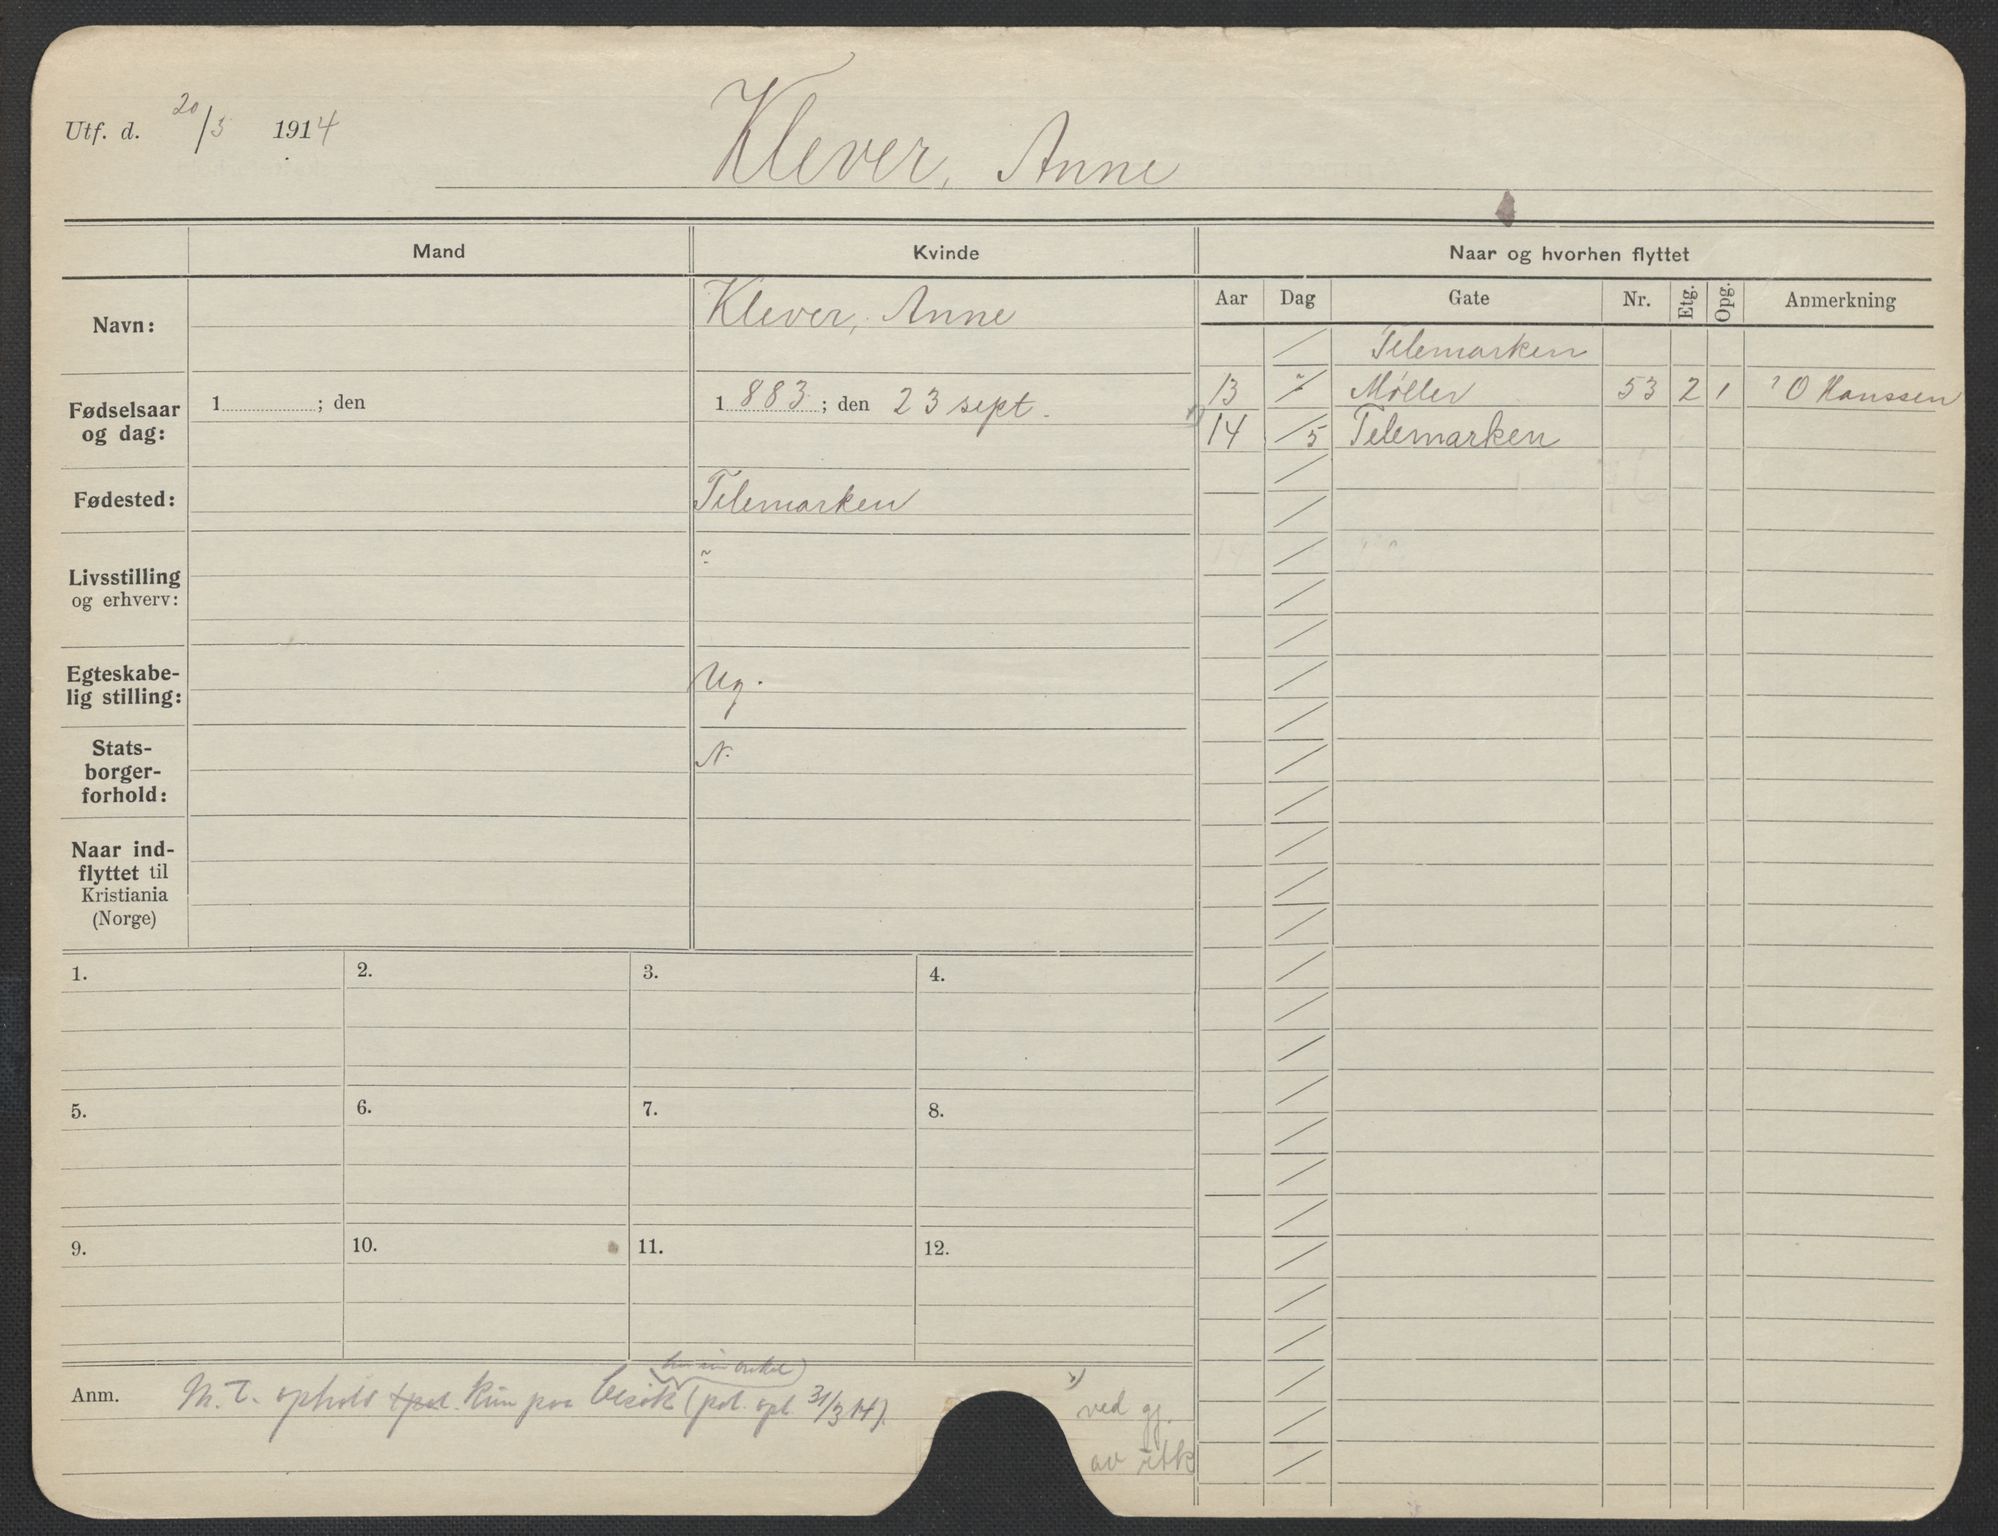 Utf. d. 20/3 1914
Klever, Anne
Mand
Kvinde
Naar og hvorhen flyttet
Navn:
Klever, Anne
Aar Dag Gate Nr. Etg. Opg. Anmerkning
/ Telemarken
13 / Møller 53 2 1 O Hanssen
14 /5 Telemarken
Fødselsaar
og dag:
1 ; den
1883; den 23 sept.
Fødested:
Telemarken
Livsstilling
og erhverv:
Egteskabe-
lig stilling:
Ug.
Stats-
borger-
forhold:
N.
Naar ind-
flyttet til
Kristiania
(Norge)
1. 2. 3. 4.
5. 6. 7. 8.
9. 10. 11. 12.
onkel)
Anm. M. T. ophold kun paa besøk (pol. opl. 31/3 14).
ved gj.
av